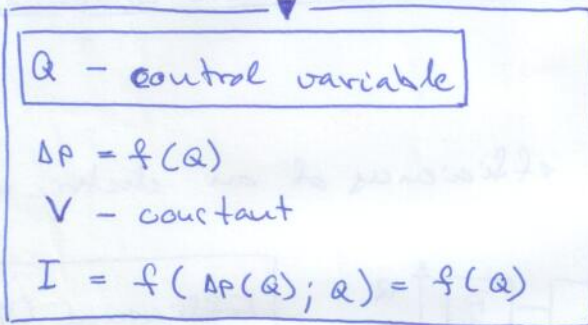 Q - control variable
Δp = f(Q)
V - constant
I = f(Δp(Q); Q) = f(Q)